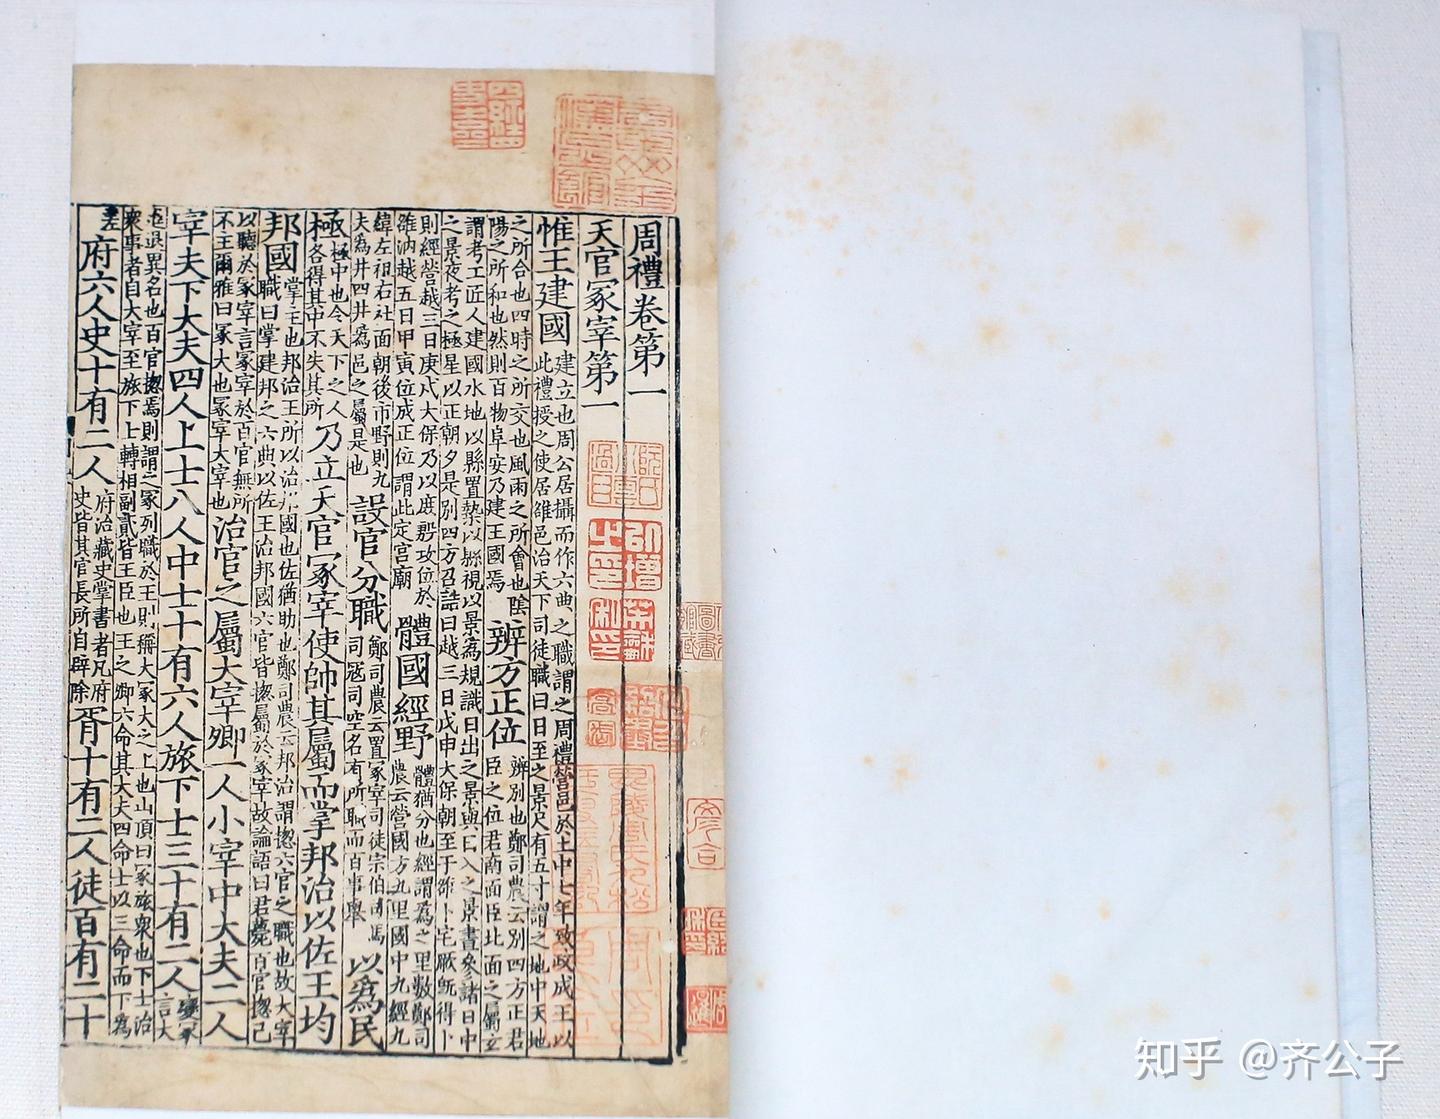 周禮卷第一
天官冢宰第一
惟王建國
建立也周公居攝而作六典之職謂之周禮營邑於土中七年致政成王以
此禮授之使居雒邑治天下司徒職曰日至之景尺有五寸謂之地中天地
之所合也四時之所交也風雨之所會也陰
陽之所和也然則百物阜安乃建王國焉
辨方正位
辨別也鄭司農云別四方正君
臣之位君南面臣北面之屬玄
謂考工匠人建國水地以縣置槷以縣視以景為規識日出之景與日入之景晝參諸日中
之景夜考之極星以正朝夕是別四方召誥曰越三日戊申大保朝至于雒卜宅厥既得卜
則經營越三日庚戌大保乃以庶殷攻位於
雒汭越五日甲寅位成正位謂此定宮廟
體國經野
體猶分也經謂為之里數鄭司
農云營國方九里國中九經九
緯左祖右社面朝後市野則九
夫為井四井為邑之屬是也
設官分職
鄭司農云置冢宰司徒宗伯司馬
司寇司空各有所職而百事舉
以為民
極
極中也令天下之人
各得其中不失其所
乃立天官冢宰使帥其屬而掌邦治以佐王均
邦國
掌主也邦治王所以治邦國也佐猶助也鄭司農云邦治謂揔六官之職也故大宰
職曰掌建邦之六典以佐王治邦國六官皆揔屬於冢宰故論語曰君薨百官揔己
以聽於冢宰言冢宰於百官無所
不主爾雅曰冢大也冢宰大宰也
治官之屬大宰卿一人小宰中大夫二人
宰夫下大夫四人上士八人中士十有六人旅下士三十有二人
變冢
言大
進退異名也百官揔焉則謂之冢列職於王則稱大冢大之上也山頂曰冢旅衆也下士治
衆事者自大宰至旅下士轉相副貳皆王臣也王之卿六命其大夫四命士以三命而下為
差
府六人史十有二人
府治藏史掌書者凡府
史皆其官長所自辟除
胥十有二人徒百有二十
知乎 @齐公子